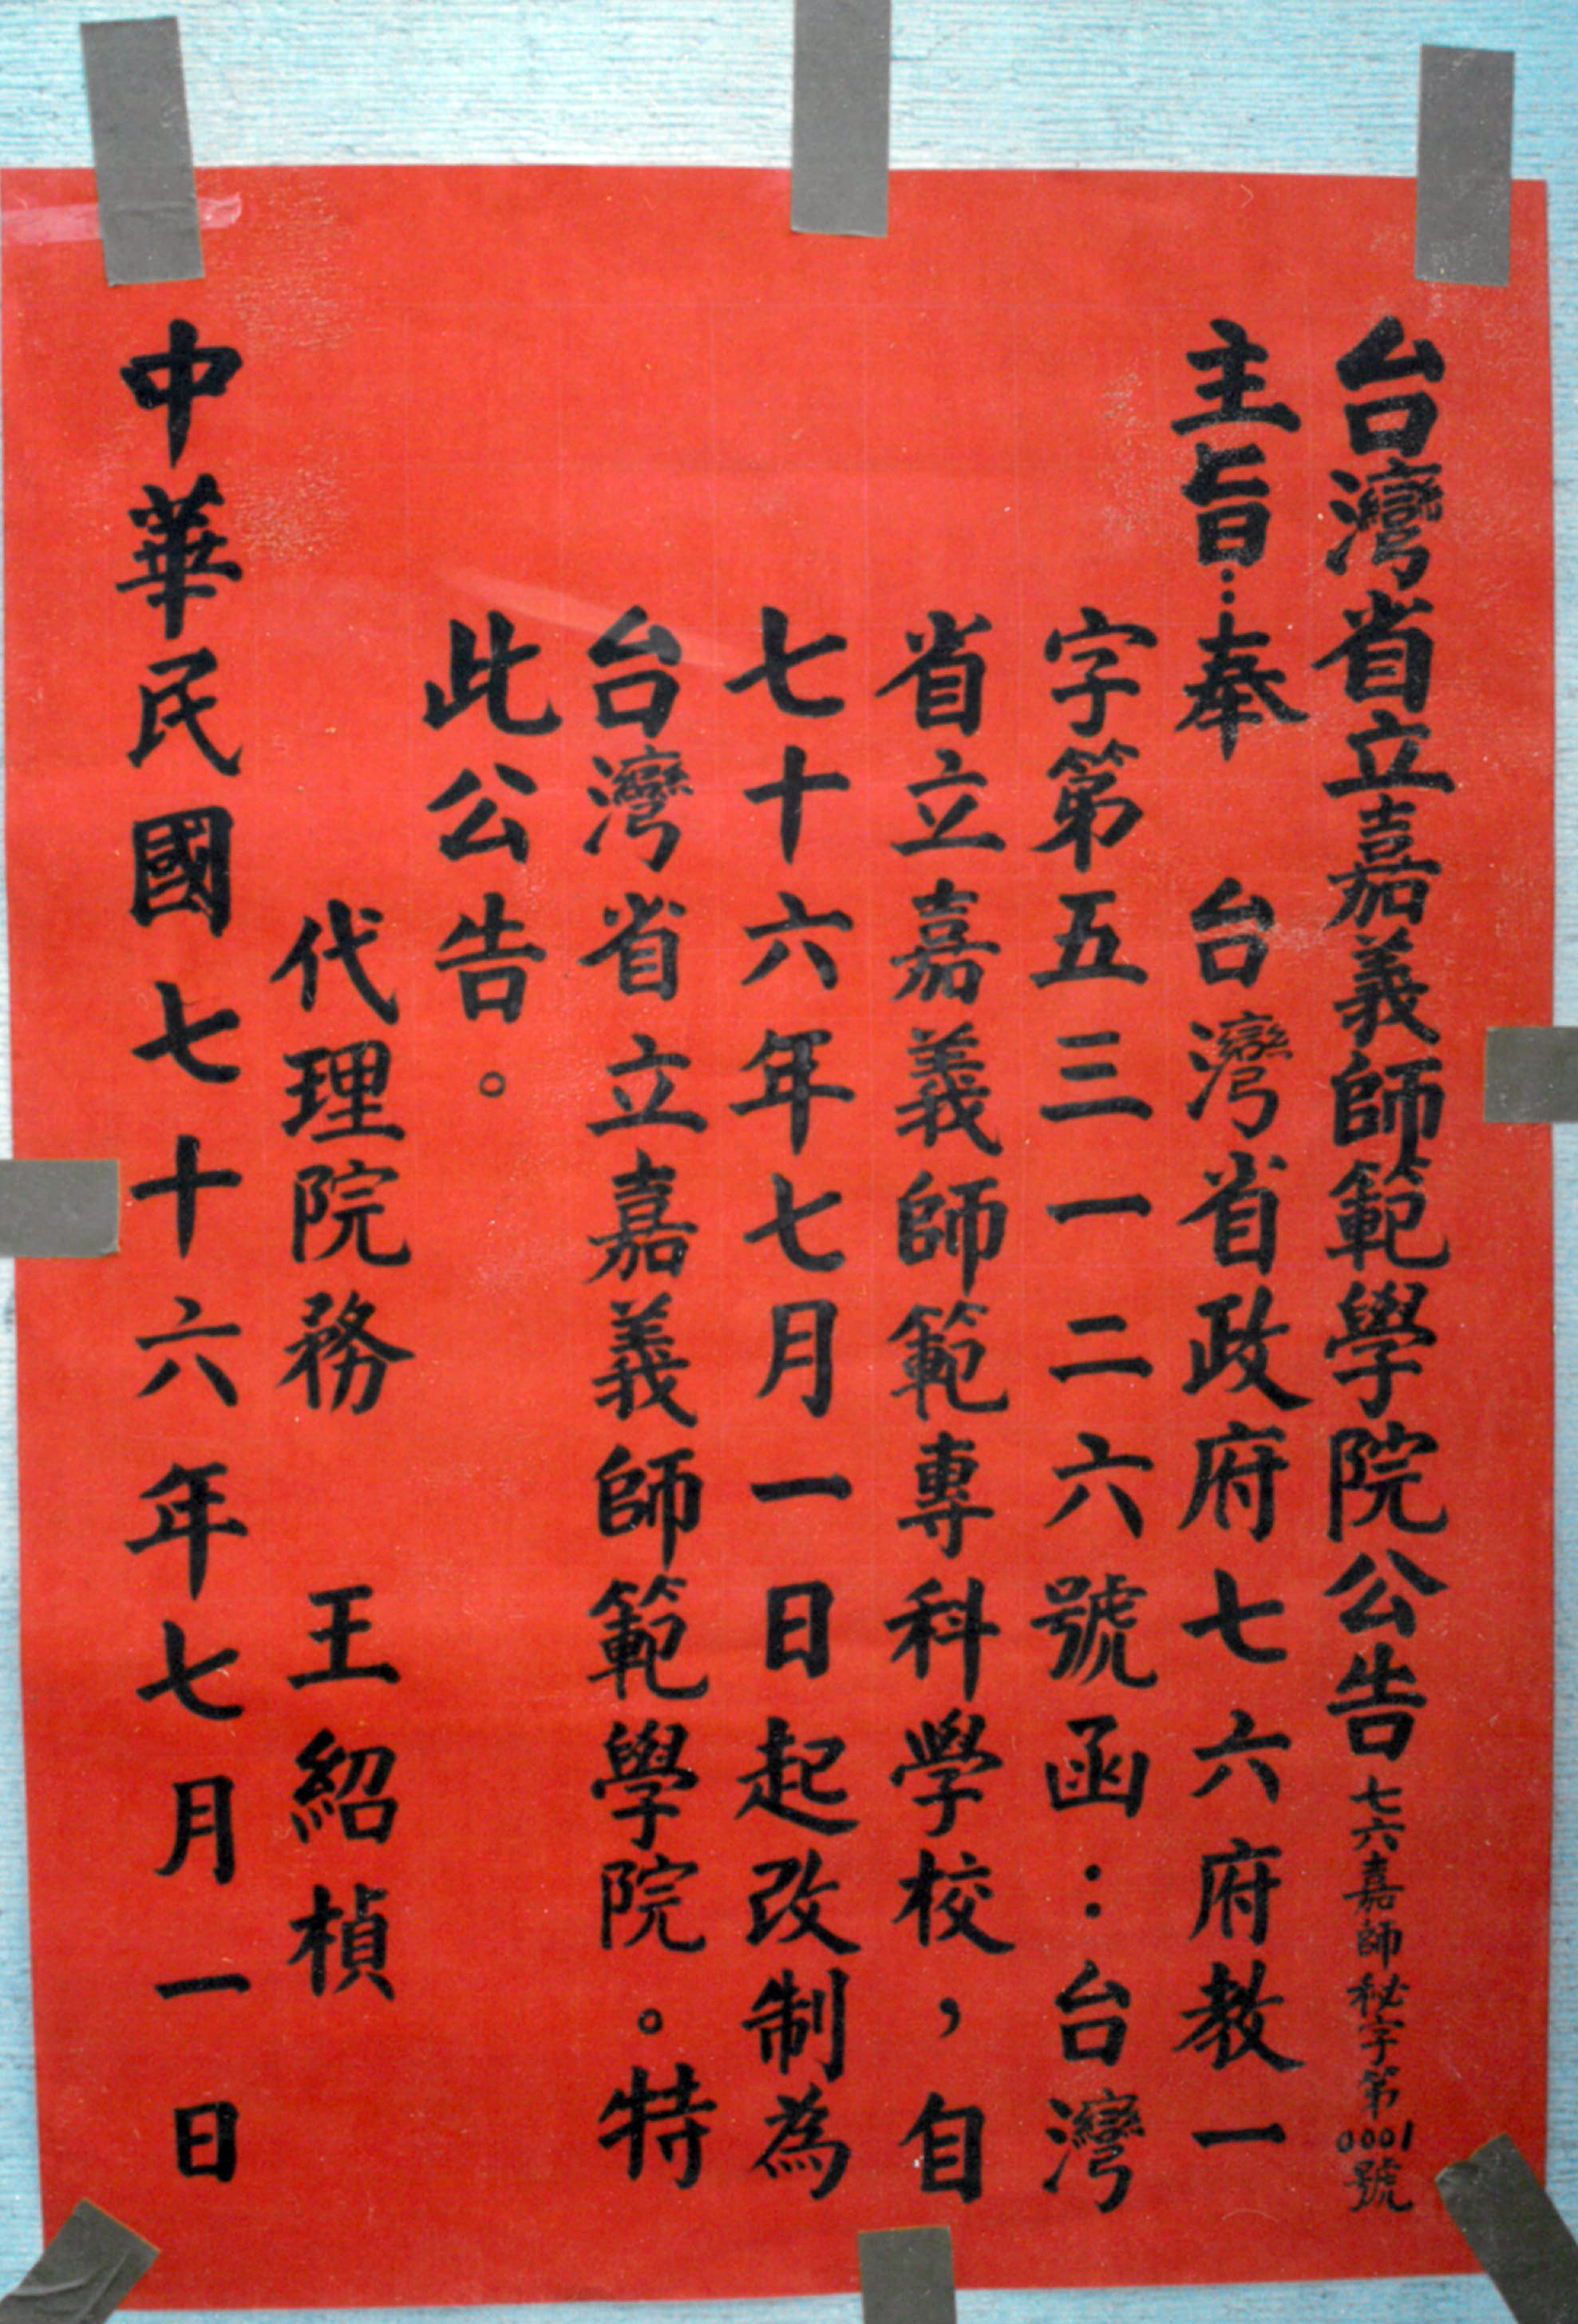 台灣省立嘉義師範學院公告 七六嘉師秘字第0001號
主旨：奉 台灣省政府七六府教一
字第五三一二六號函：台灣
省立嘉義師範專科學校，自
七十六年七月一日起改制為
台灣省立嘉義師範學院。特
此公告。
代理院務 王紹楨
中華民國七十六年七月一日